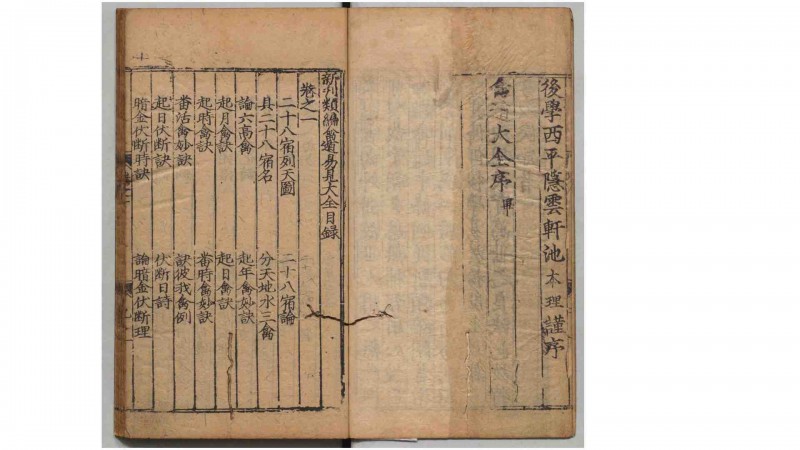 後學西平隱雲軒池本理謹序
禽遁大全序畢
新刋類編禽遁易見大全目錄
卷之一
二十八宿列天圖 二十八宿論
具二十八宿名 分天地水三禽
論六高禽 起年禽妙訣
起月禽訣 起日禽訣
起時禽訣 畨時禽妙訣
畨活禽妙訣 訣彼我禽例
起日伏斷訣 伏斷日詩
暗金伏斷時訣 論暗金伏斷理